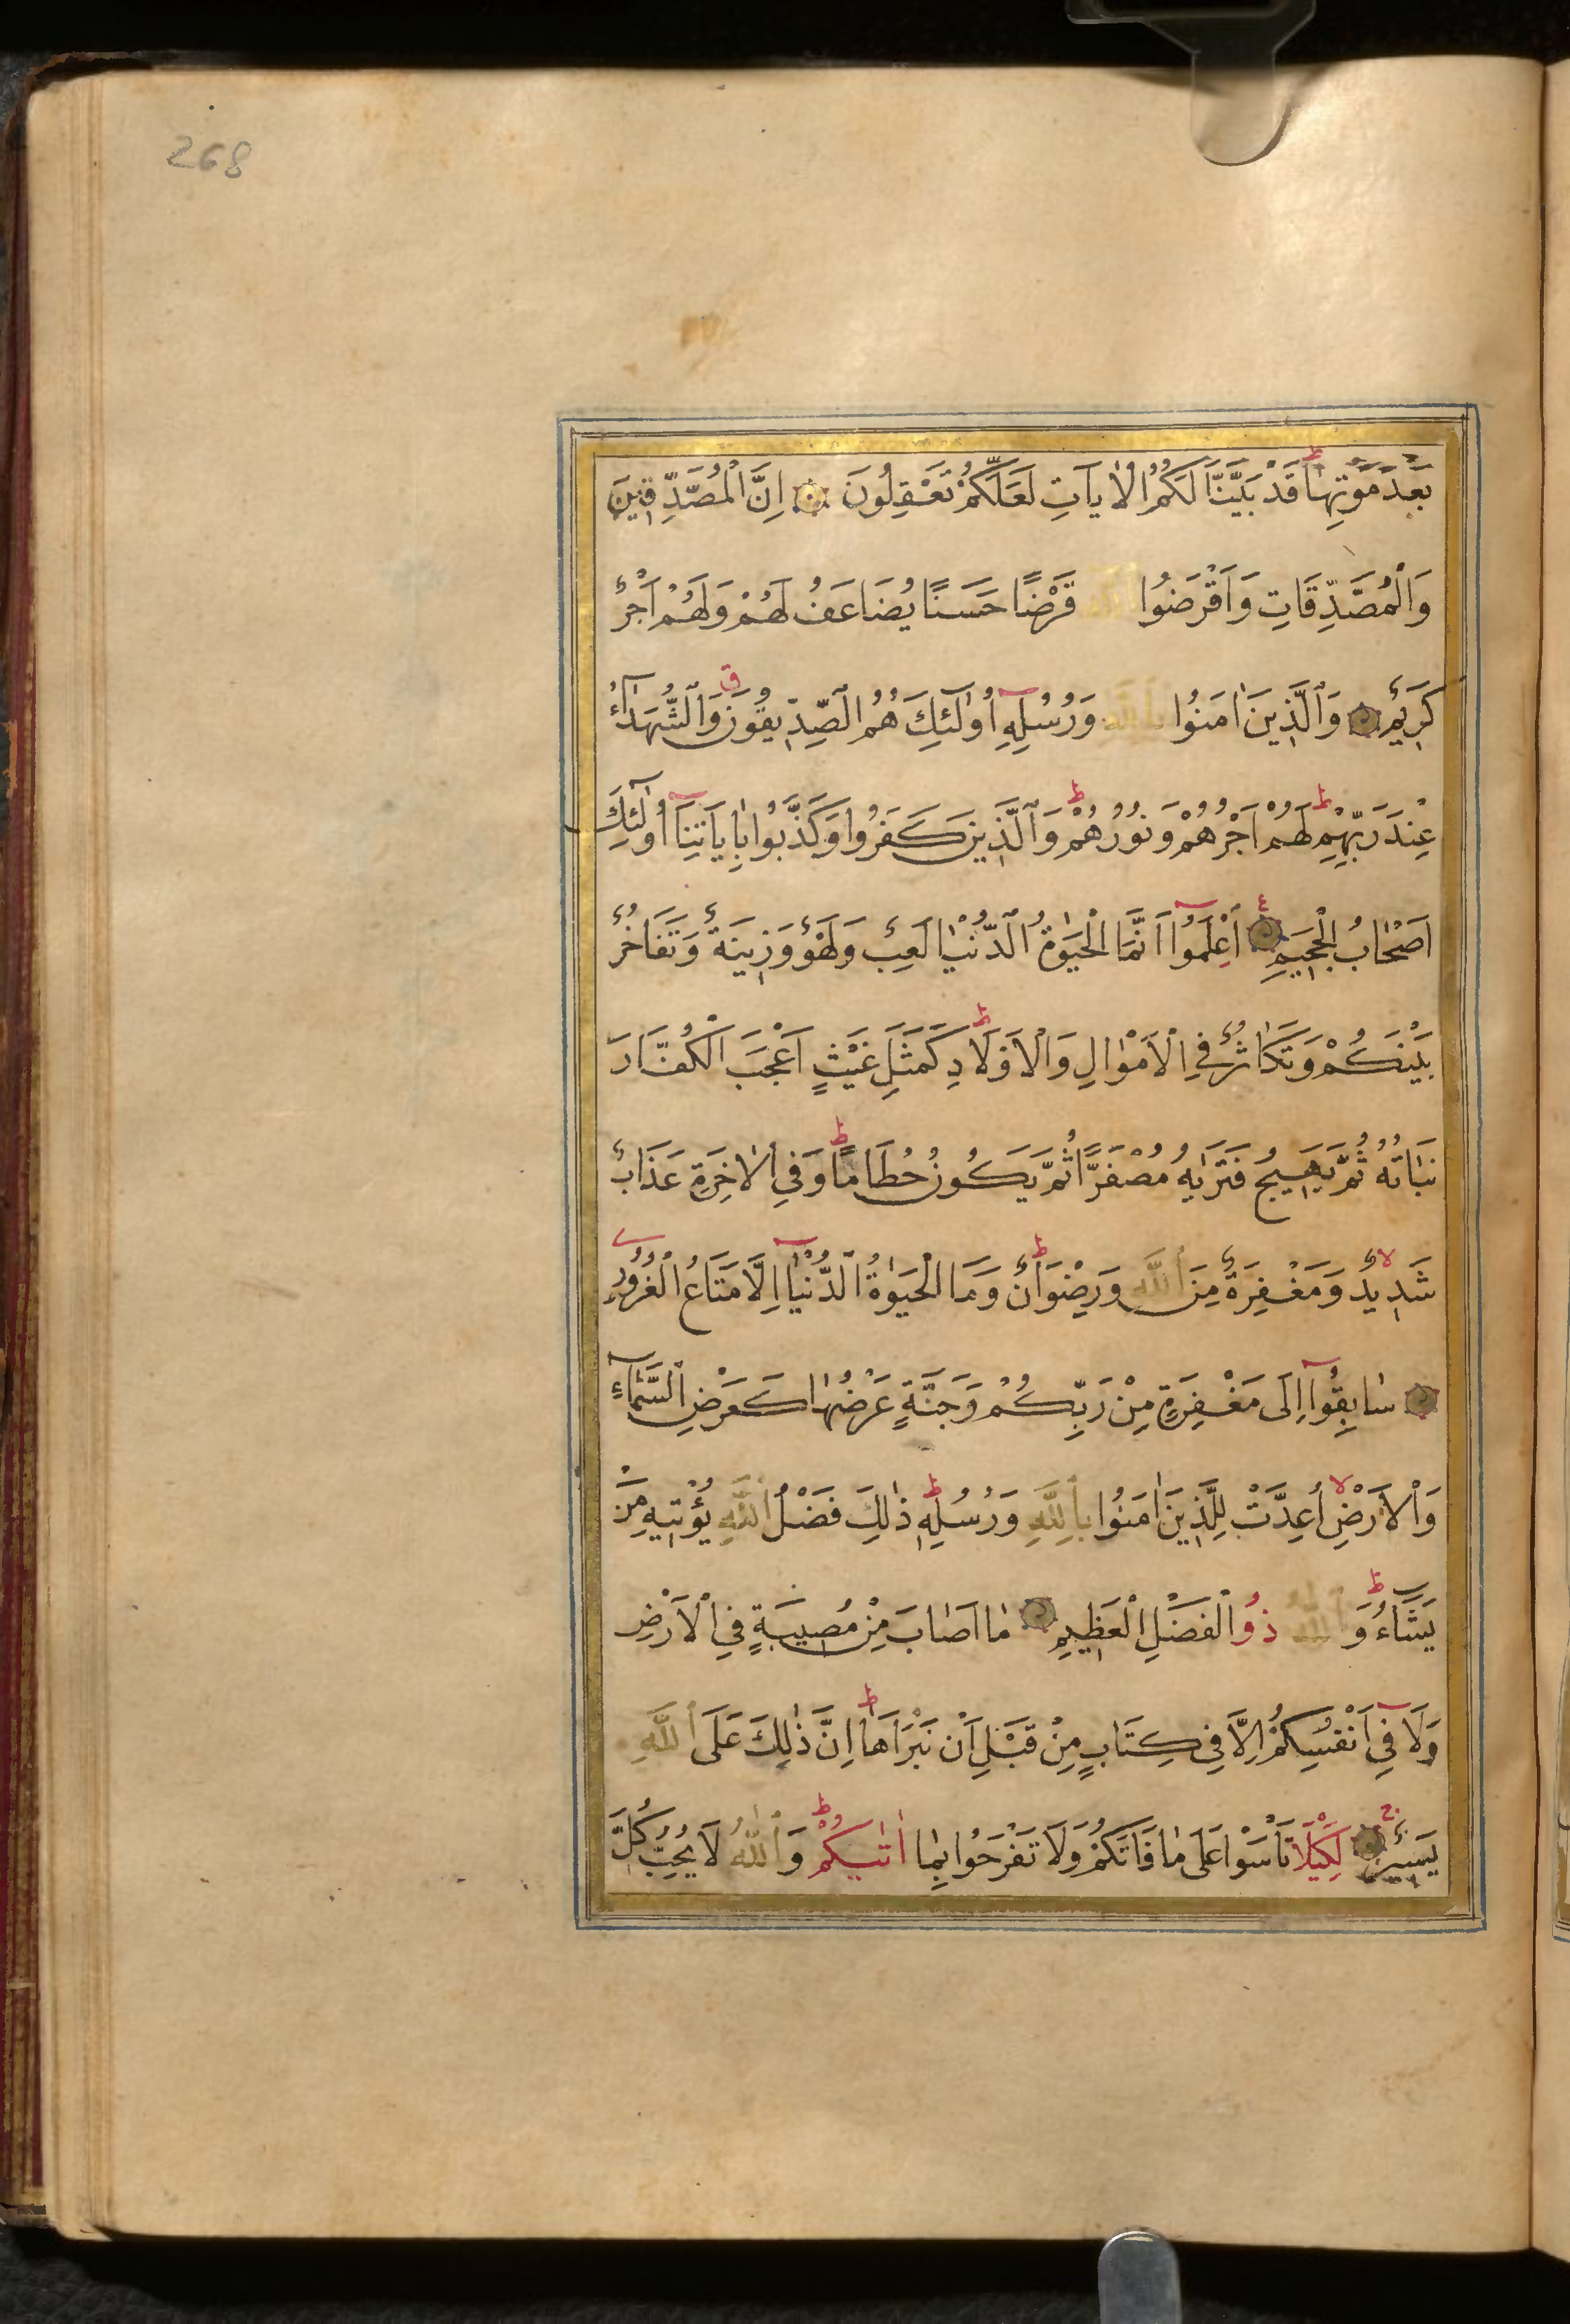 268
بَعْدَ مَوْتِهَا قَدْ بَيَّنَّا لَكُمُ الْاٰيَاتِ لَعَلَّكُمْ تَعْقِلُونَ اِنَّ الْمُصَّدِّقِينَ
وَالْمُصَّدِّقَاتِ وَاَقْرَضُوا اللّٰهَ قَرْضًا حَسَنًا يُضَاعَفُ لَهُمْ وَلَهُمْ اَجْرٌ
كَرِيمٌ وَالَّذِينَ اٰمَنُوا بِاللّٰهِ وَرُسُلِهِ اُولٰٓئِكَ هُمُ الصِّدِّيقُونَ وَالشُّهَدَٓاءُ
عِنْدَ رَبِّهِمْ لَهُمْ اَجْرُهُمْ وَنُورُهُمْ وَالَّذِينَ كَفَرُوا وَكَذَّبُوا بِاٰيَاتِنَا اُولٰٓئِكَ
اَصْحَابُ الْجَحِيمِ اِعْلَمُوا اَنَّمَا الْحَيٰوةُ الدُّنْيَا لَعِبٌ وَلَهْوٌ وَزِينَةٌ وَتَفَاخُرٌ
بَيْنَكُمْ وَتَكَاثُرٌ فِي الْاَمْوَالِ وَالْاَوْلَادِ كَمَثَلِ غَيْثٍ اَعْجَبَ الْكُفَّارَ
نَبَاتُهُ ثُمَّ يَهِيجُ فَتَرٰيهُ مُصْفَرًّا ثُمَّ يَكُونُ حُطَامًا وَفِي الْاٰخِرَةِ عَذَابٌ
شَدِيدٌ وَمَغْفِرَةٌ مِنَ اللّٰهِ وَرِضْوَانٌ وَمَا الْحَيٰوةُ الدُّنْيَا اِلَّا مَتَاعُ الْغُرُورِ
سَابِقُوا اِلَى مَغْفِرَةٍ مِنْ رَبِّكُمْ وَجَنَّةٍ عَرْضُهَا كَعَرْضِ السَّمَٓاءِ
وَالْاَرْضِ اُعِدَّتْ لِلَّذِينَ اٰمَنُوا بِاللّٰهِ وَرُسُلِهِ ذٰلِكَ فَضْلُ اللّٰهِ يُؤْتِيهِ مَنْ
يَشَٓاءُ وَاللّٰهُ ذُو الْفَضْلِ الْعَظِيمِ مَا اَصَابَ مِنْ مُصِيبَةٍ فِي الْاَرْضِ
وَلَا فِي اَنْفُسِكُمْ اِلَّا فِي كِتَابٍ مِنْ قَبْلِ اَنْ نَبْرَاَهَا اِنَّ ذٰلِكَ عَلَى اللّٰهِ
يَسِيرٌ لِكَيْلَا تَأْسَوْا عَلَى مَا فَاتَكُمْ وَلَا تَفْرَحُوا بِمَا اٰتٰيكُمْ وَاللّٰهُ لَا يُحِبُّ كُلَّ